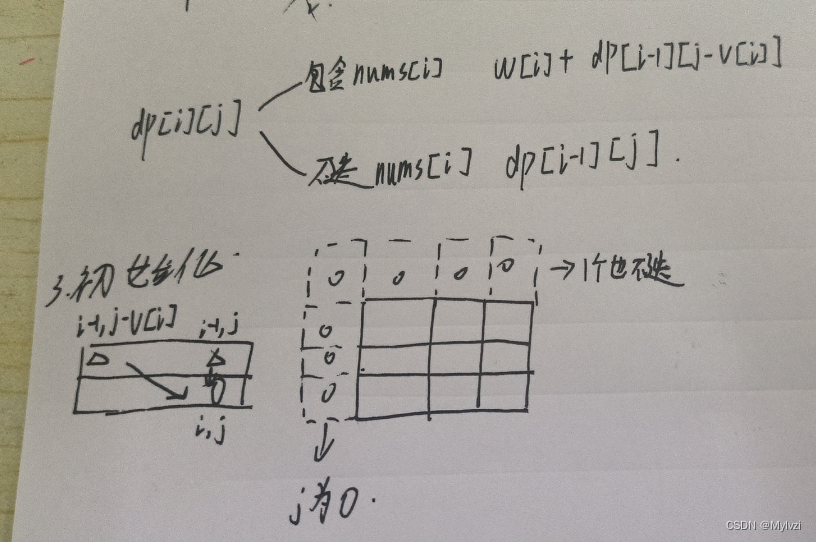 包含nums[i] w[i]+ dp[i-1][j-v[i]]
dp[i][j]
不选nums[i] dp[i-1][j].
3.初始化.
0 0 0 0 →1个也不选
i-1,j-v[i] i-1,j
0
0
0
i,j
j为0.
CSDN @Mylvzi